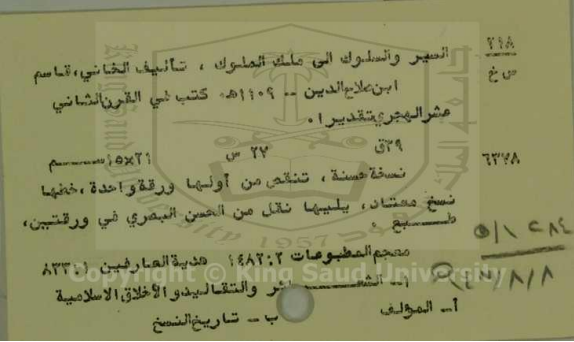 ٢١٨
س خ
السير والسلوك الى ملك الملوك ، تأليف الخاني، قاسم
ابن صلاح الدين -- ١١٠٩هـ. كتب في القرن الثاني
عشر الهجري تقديرا .
٣٩ق ٢٧ س ٢١×١٥سم
٦٣٧٨
نسخة حسنة، تنقص من أولها ورقة واحدة، خطها
نسخ معتاد، يليها نقل من الحسن البصري في ورقتين،
طبع .
معجم المطبوعات ١٤٨٢:٢ هدية العارفين ٨٣٣:١
أ- الشعائر والتقاليد و الأخلاق الاسلامية
أ- المؤلف ب - تاريخ النسخ
Copyright © King Saud University
1957